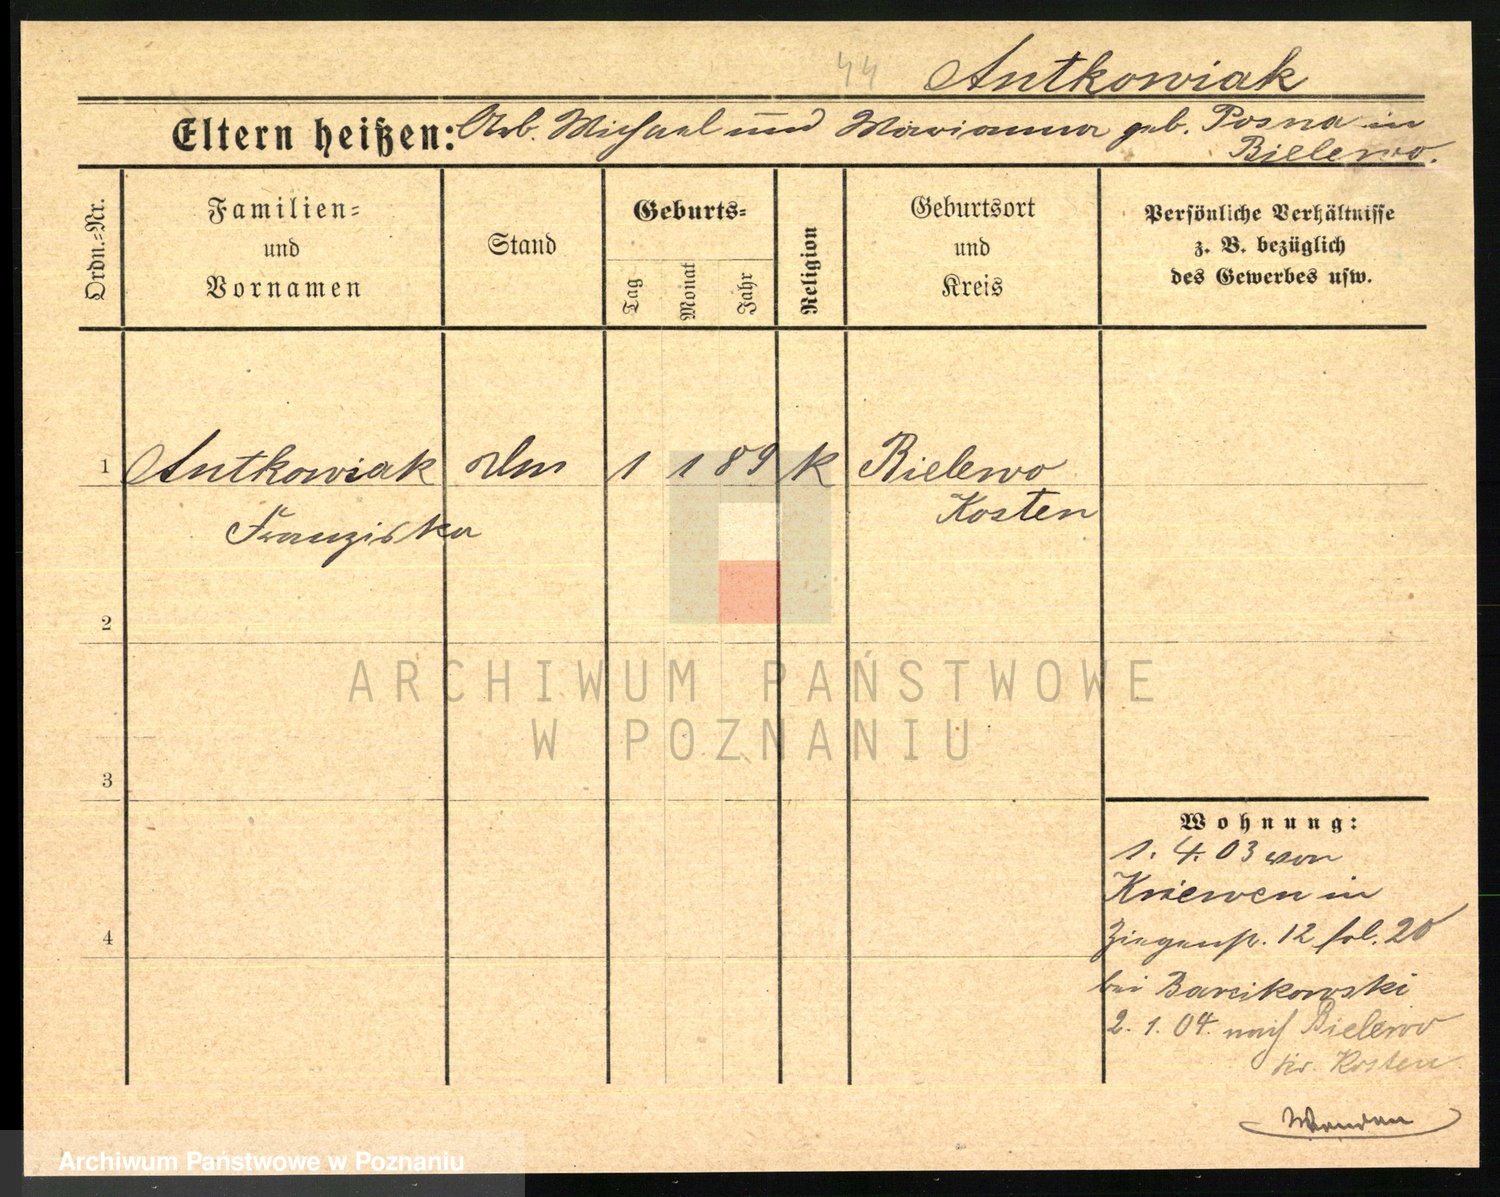 44 Antkowiak
Eltern heißen: Arb. Michael und Marianna geb. Posna in
Bielewo.
Ordn.-Nr.
Familien-
und
Vornamen
Stand
Geburts-
Tag
Monat
Jahr
Religion
Geburtsort
und
Kreis
Persönliche Verhältnisse
z. B. bezüglich
des Gewerbes usw.
1 Antkowiak 1 1 89 K Bielewo
Franziska Kosten
2
3
4
ARCHIWUM PAŃSTWOWE
W POZNANIU
Wohnung:
1. 4. 03 von
Kriewen in
12 fol. 20
bei Barcikowski
2. 1. 04. nach Bielewo
Kr. Kosten
Archiwum Państwowe w Poznaniu